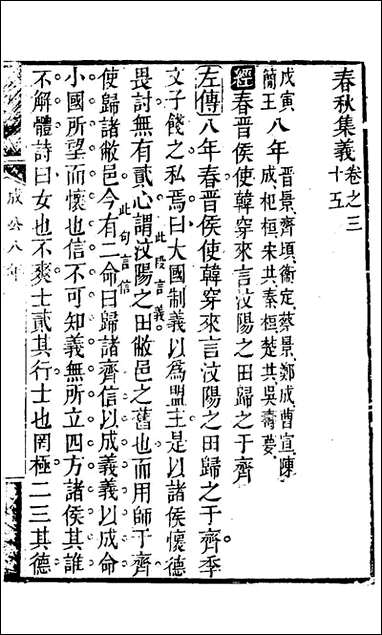 春秋集義卷之三十五
戊寅簡王八年晉景齊頃衞定蔡景鄭成曹宣陳成杞桓宋共秦桓楚共吳壽夢
經春晉侯使韓穿來言汶陽之田歸之于齊
左傳八年春晉侯使韓穿來言汶陽之田歸之于齊季
文子餞之私焉曰大國制義以爲盟主是以諸侯懷德
此段言義
畏討無有貳心謂汶陽之田敝邑之舊也而用師于齊
此句言信
使歸諸敝邑今有二命曰歸諸齊信以成義義以成命
小國所望而懷也信不可知義無所立四方諸侯其誰
不解體詩曰女也不爽士貳其行士也罔極二三其德
成公八年